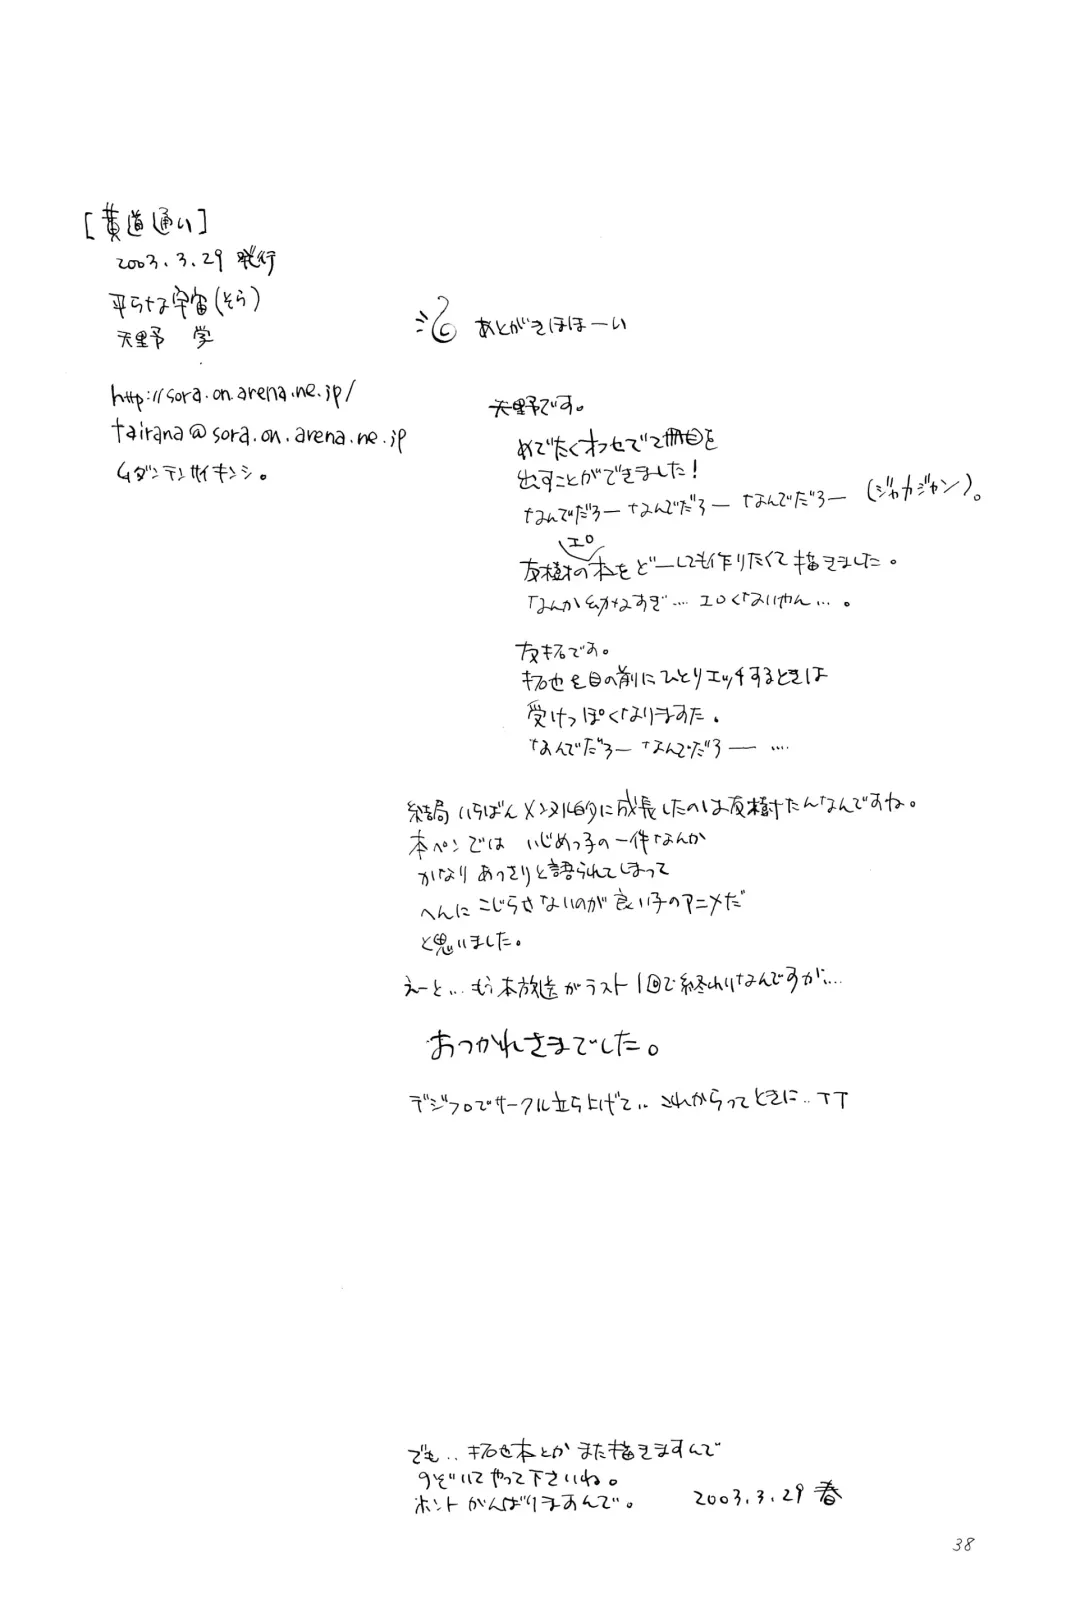 [黄道通い]
2003.3.29 発行
平らな宇宙(そら)
天野 学
http://sora.on.arena.ne.jp/
tairana@sora.on.arena.ne.jp
ムダンテンサイキンシ。
あとがきほほーい
天野です。
めでたくオフセで2冊目を
出すことができました!
なんでだろー なんでだろー なんでだろー (ジャカジャン)。
エロ
友樹の本をどーしても作りたくて描きました。
なんか幼なすぎ… エロくないやん…。
友拓です。
拓也を目の前にひとりエッチするときは
受けっぽくなりますた。
なんでだろー なんでだろー ….
結局 いちばんメンタル的に成長したのは友樹たんなんですね。
本ペンでは いじめっ子の一件なんか
かなり あっさりと語られてしまって
へんに こじらさないのが良い子のアニメだ
と思いました。
えーと… もう本放送がラスト1回で終わりなんですが…
おつかれさまでした。
デジフロでサークル立ち上げて.. これからってときに.. TT
でも.. 拓也本とか また描きますんで
のぞいてやって下さいね。
ホント がんばりますんで。 2003.3.29 春
38